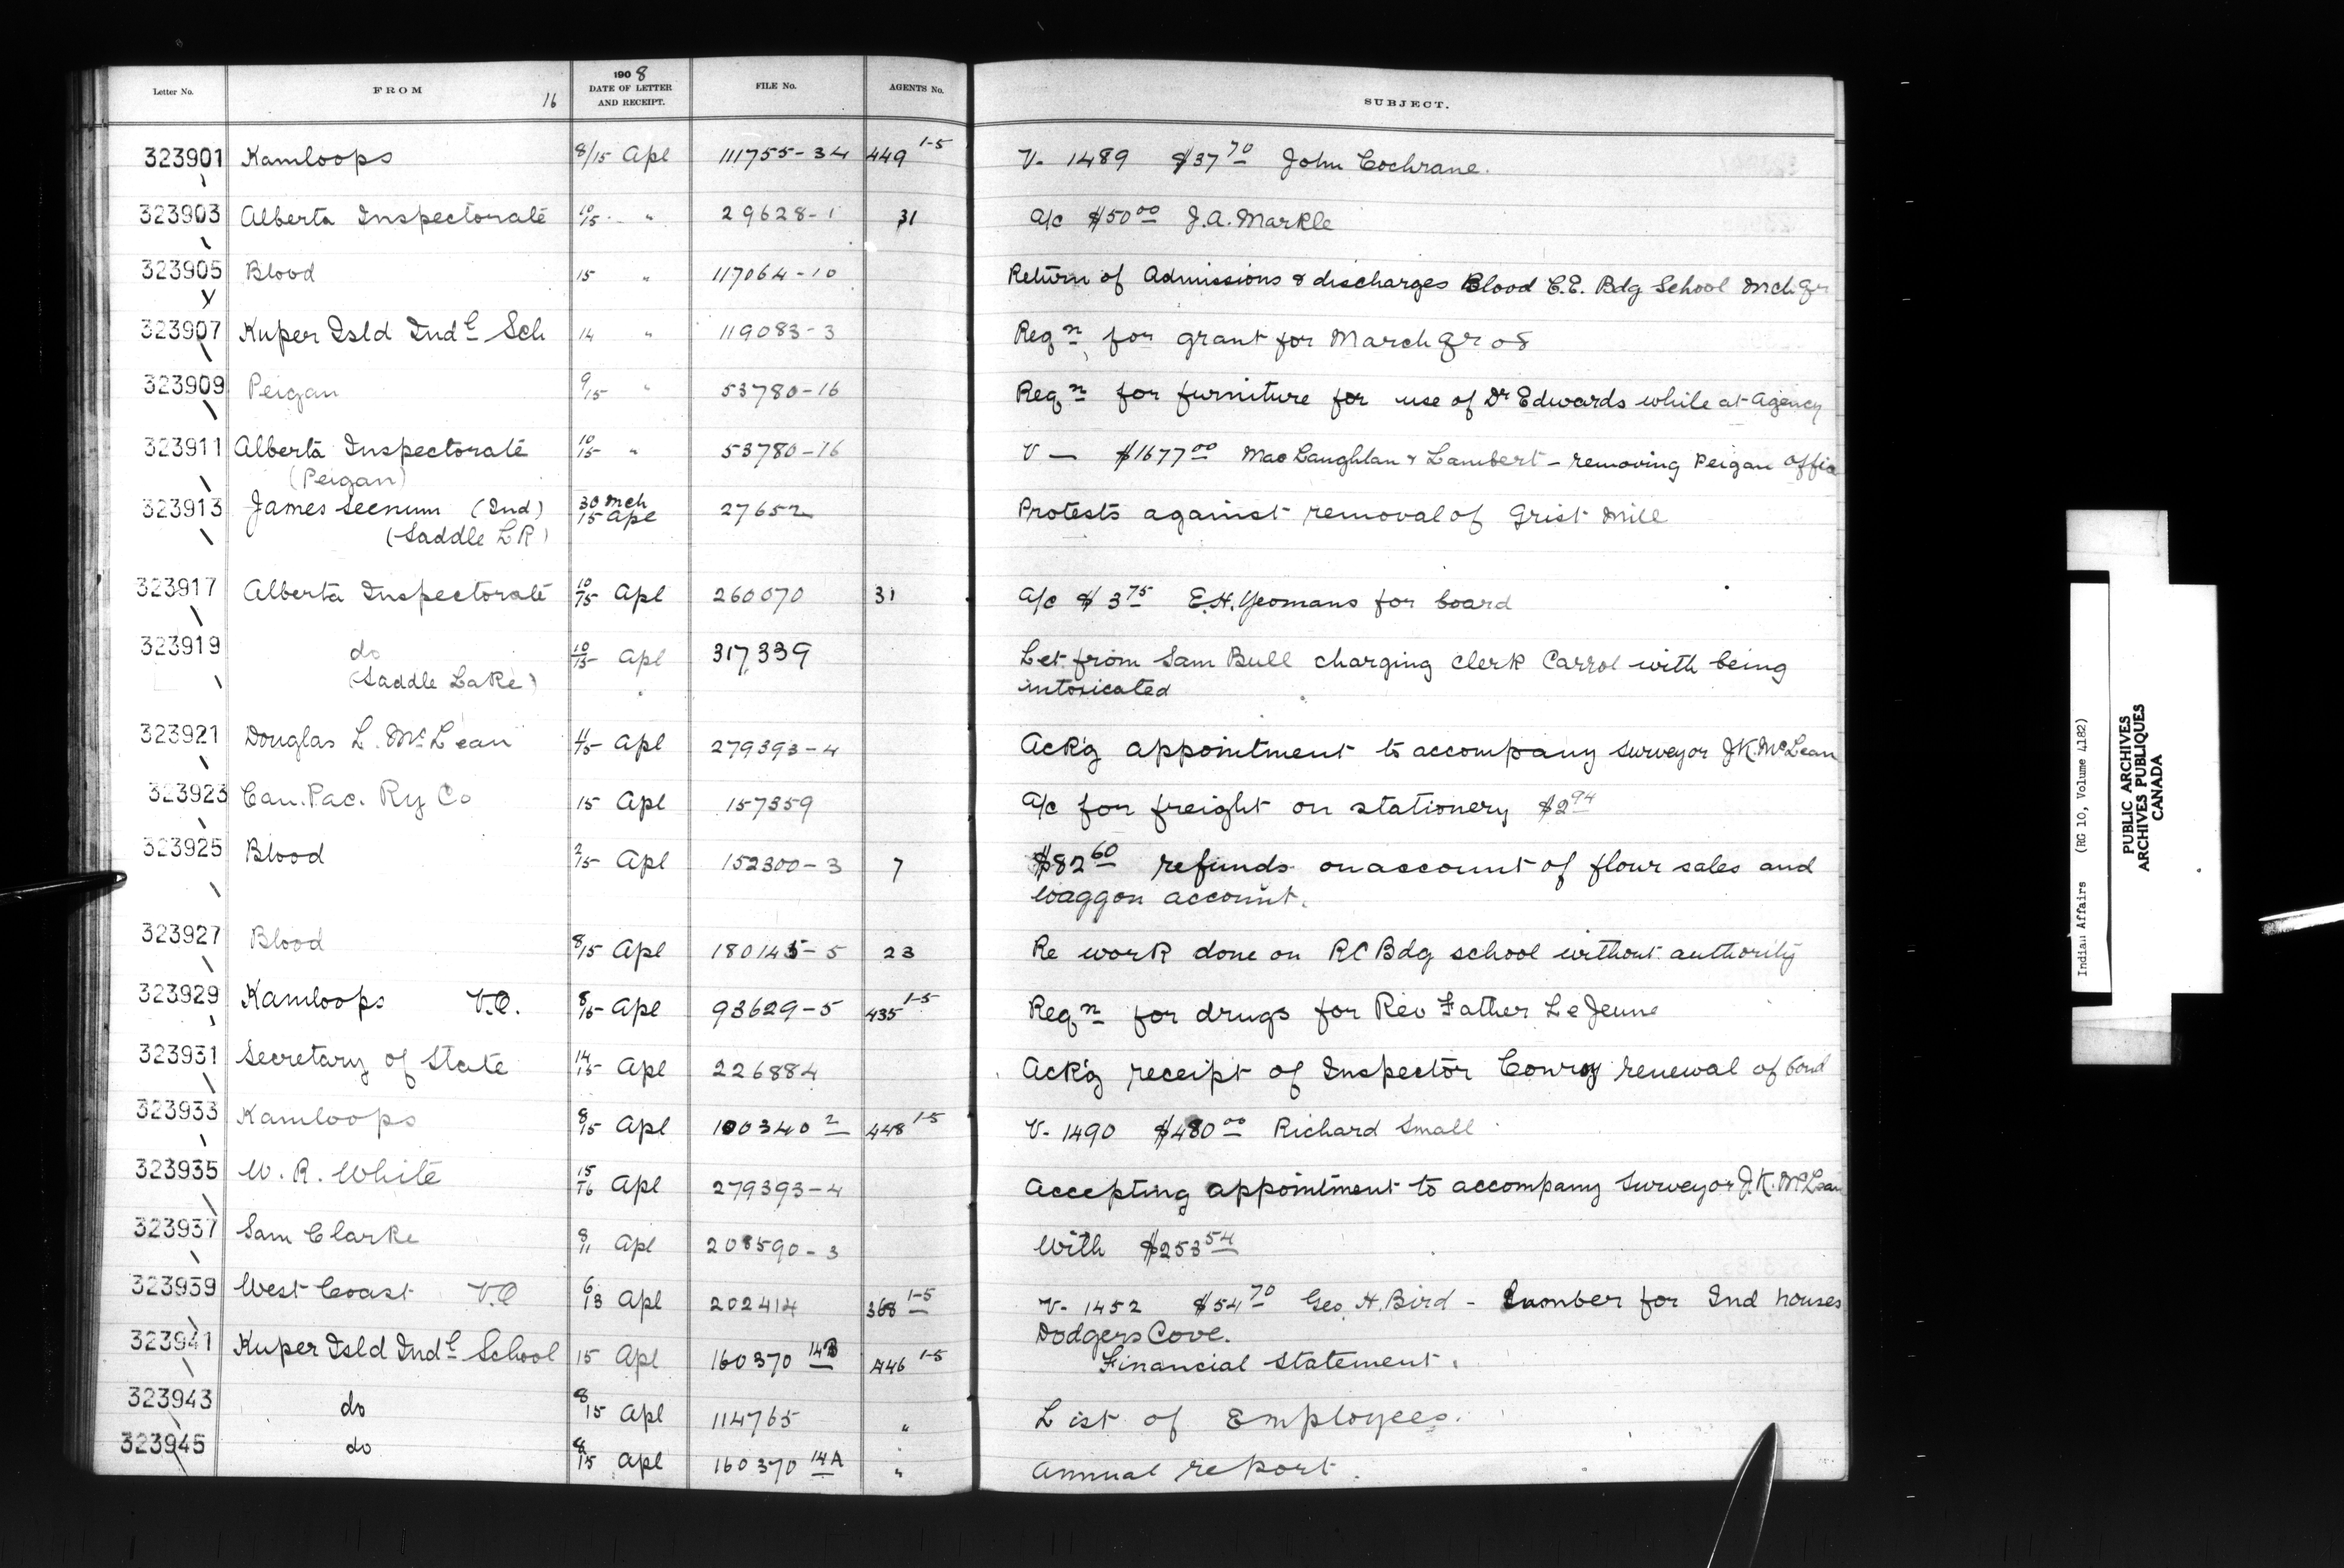 Letter No. FROM 16 1908 DATE OF LETTER AND RECEIPT. FILE No. AGENTS No. SUBJECT.
323901 Kamloops 8/15 Apl 111755-34 449 1-5 V- 1489 $37 70 John Cochrane.
323903 Alberta Inspectorate 10/15 " 29628-1 31 a/c $50 00 J.A. Markle
323905 Blood 15 " 117064-10 Return of Admissions & discharges Blood C.E. Bdg School Mch Qr
323907 Kuper Isld Indl Sch 14 " 119083-3 Reqn for grant for March Qr 08
323909 Peigan 9/15 " 53780-16 Reqn for furniture for use of Dr Edwards while at Agency
323911 Alberta Inspectorate 10/15 " 53780-16 V — $1677 00 MacLaughlan & Lambert - removing Peigan Office
(Peigan)
323913 James Seenum (Ind) 30 Mch 27652 Protests against removal of Grist Mill
(Saddle L R) 15 Apl
323917 Alberta Inspectorate 10/15 Apl 260070 31 a/c $3 75 E.H. Yeomans for board
323919 do 10/15 Apl 317339 Let from Sam Bull charging clerk Carrol with being
(Saddle Lake) intoxicated
323921 Douglas L. McLean 11/15 Apl 279393-4 Ack'g appointment to accompany surveyor J.K. McLean
323923 Can. Pac. Ry Co 15 Apl 157359 a/c for freight on stationery $2 94
323925 Blood 2/15 Apl 152300-3 7 $82 60 refunds on account of flour sales and
waggon account.
323927 Blood 8/15 Apl 180145-5 23 Re work done on RC Bdg school without authority
323929 Kamloops V.O. 8/15 Apl 93629-5 435 1-5 Reqn for drugs for Rev Father Le Jeune
323931 Secretary of State 14/15 Apl 226884 Ack'g receipt of Inspector Conroy renewal of bond
323933 Kamloops 8/15 Apl 100340 2 448 1-5 V- 1490 $480 00 Richard Small
323935 W. R. White 15/16 Apl 279393-4 Accepting appointment to accompany surveyor J.K. McLean
323937 Sam Clarke 8/11 Apl 208590-3 With $253 54
323939 West Coast V.O 6/13 Apl 202414 368 1-5 V- 1452 $54 70 Geo. H. Bird - Lumber for Ind houses
Dodgers Cove.
323941 Kuper Isld Indl School 15 Apl 160370 14B 446 1-5 Financial Statement.
323943 do 8/15 Apl 114765 " List of Employees.
323945 do 8/15 Apl 160370 14A " Annual report.
Indian Affairs (RG 10, Volume 4182)
PUBLIC ARCHIVES
ARCHIVES PUBLIQUES
CANADA